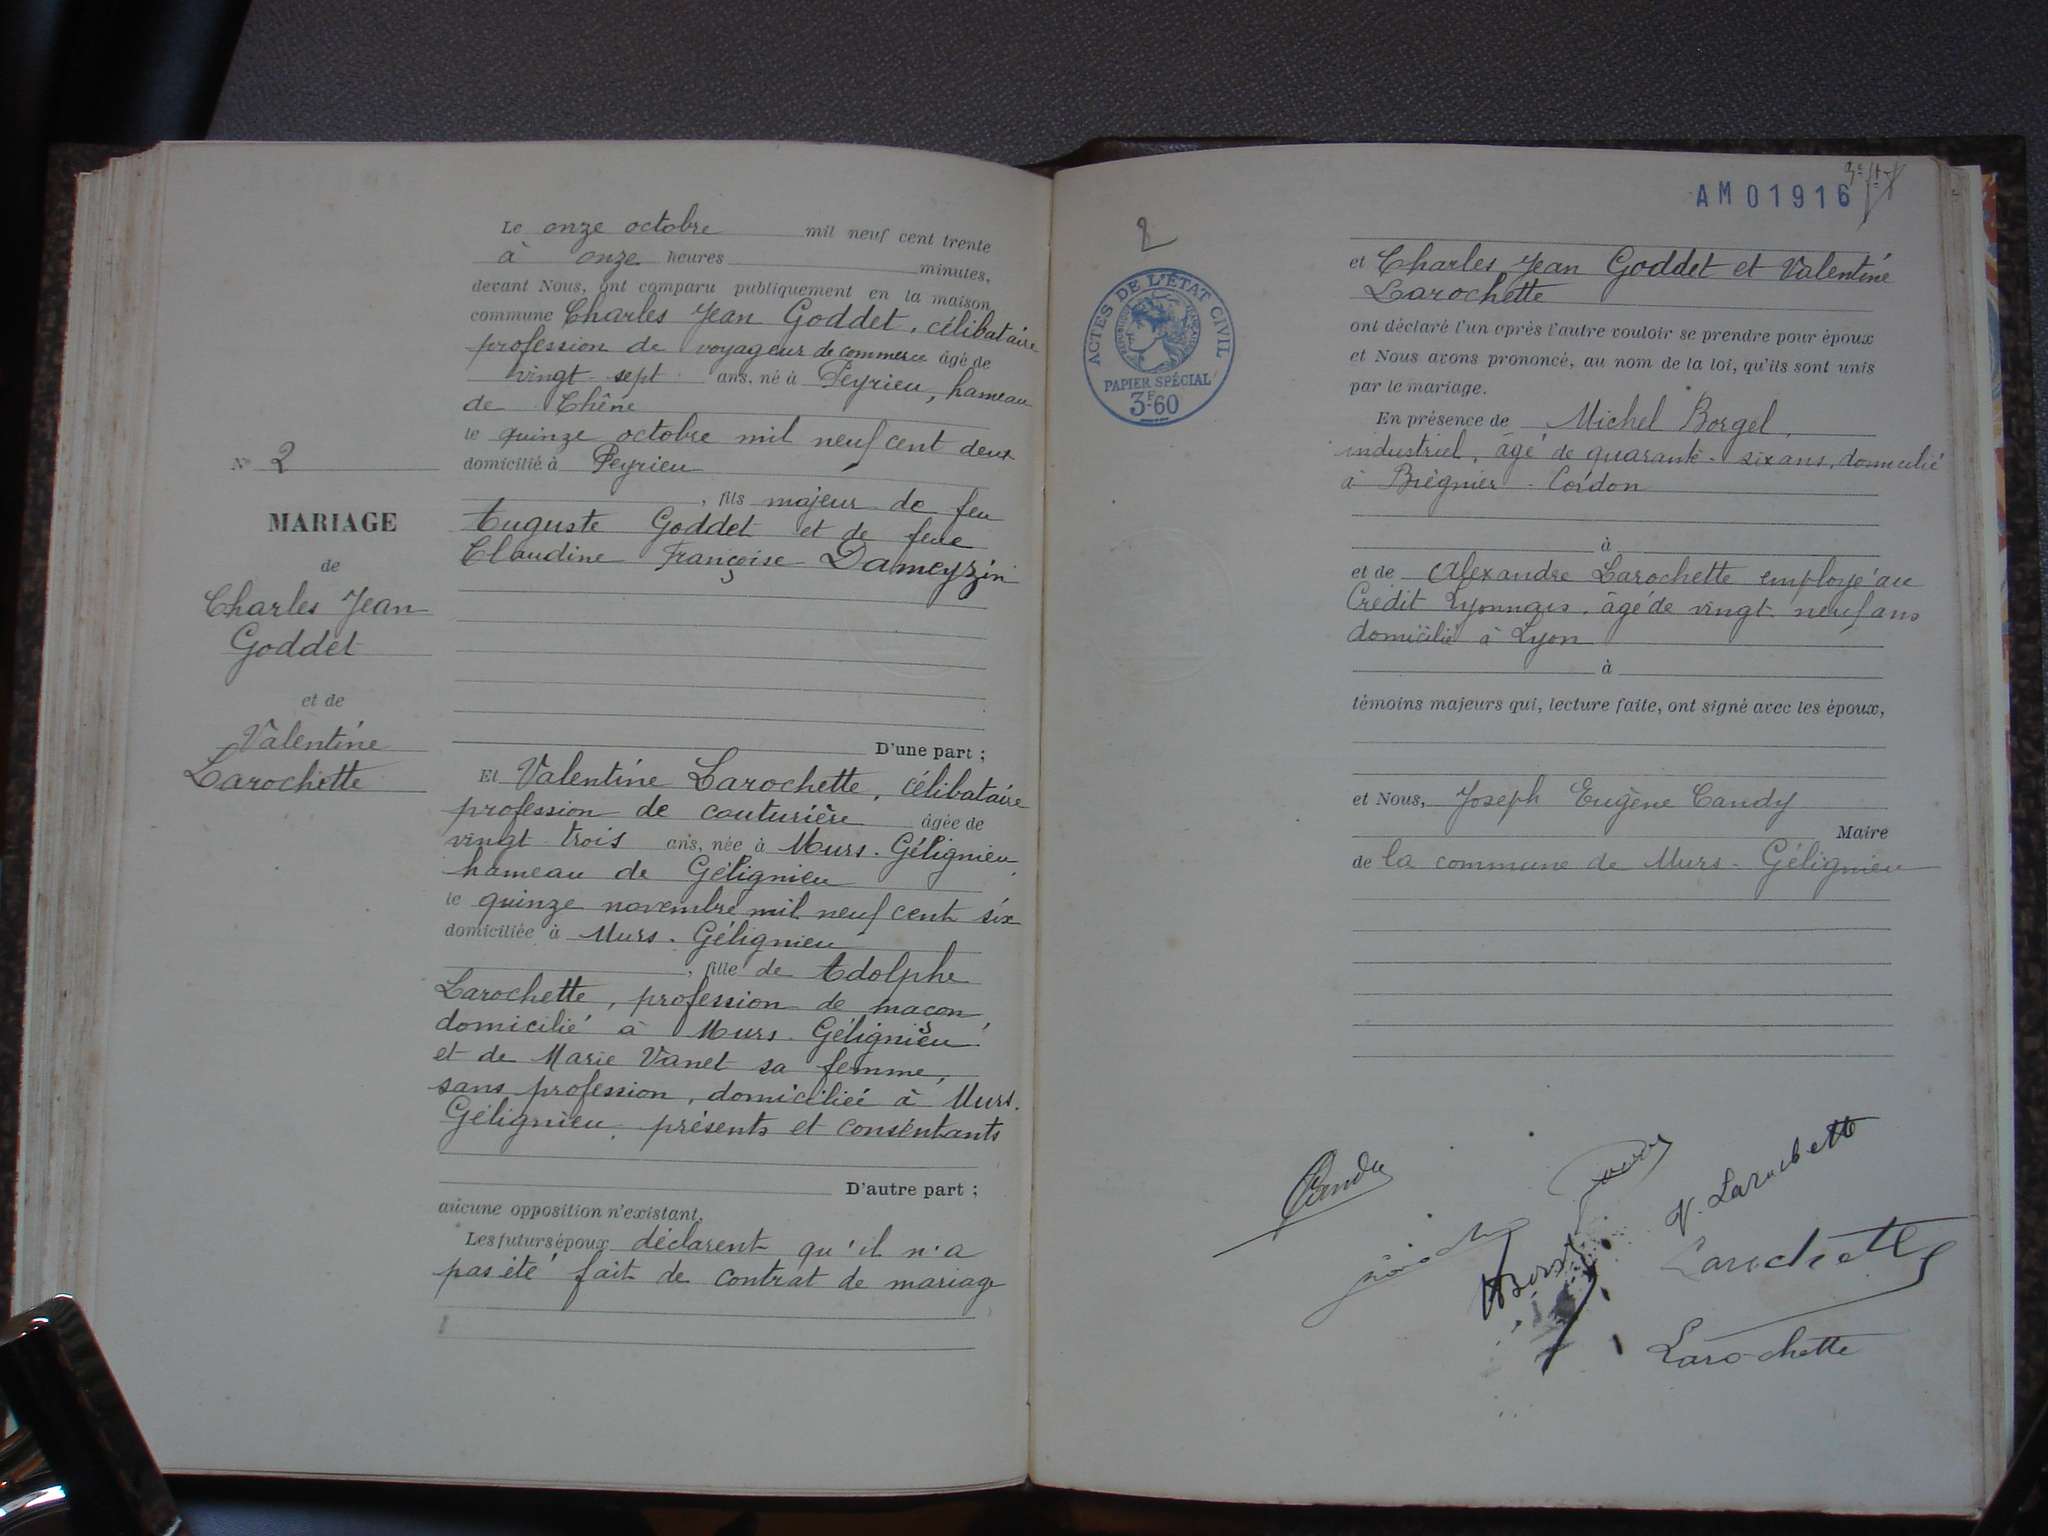 Le onze octobre mil neuf cent trente
à onze heures minutes,
devant Nous, ont comparu publiquement en la maison
commune Charles Jean Goddet, célibataire
profession de voyageur de commerce âgé de
vingt-sept ans, né à Peyrieu, hameau
de Chêne
le quinze octobre mil neuf cent deux
domicilié à Peyrieu
, fils majeur de feu
Auguste Goddet et de feue
Claudine Françoise Dameyzin
D'une part ;
Nº 2
MARIAGE
de
Charles Jean
Goddet
et de
Valentine
Larochette
Et Valentine Larochette, célibataire
profession de couturière âgée de
vingt trois ans, née à Murs-Gélignieu,
hameau de Gélignieu
le quinze novembre mil neuf cent six
domiciliée à Murs-Gélignieu
, fille de Adolphe
Larochette, profession de maçon,
domicilié à Murs-Gélignieu
et de Marie Vanet sa femme,
sans profession, domiciliée à Murs-
Gélignieu, présents et consentants
D'autre part ;
aucune opposition n'existant.
Les futurs époux déclarent qu'il n'a
pas été fait de contrat de mariage
AM 01916
2
ACTES DE L'ÉTAT CIVIL
RÉPUBLIQUE FRANÇAISE
PAPIER SPÉCIAL
3F.60
et Charles Jean Goddet et Valentine
Larochette
ont déclaré l'un après l'autre vouloir se prendre pour époux
et Nous avons prononcé, au nom de la loi, qu'ils sont unis
par le mariage.
En présence de Michel Borgel,
industriel, âgé de quarante-six ans, domicilié
à Brégnier-Cordon
à
et de Alexandre Larochette employé au
Crédit Lyonnais, âgé de vingt-neuf ans
domicilié à Lyon
à
témoins majeurs qui, lecture faite, ont signé avec les époux,
et Nous, Joseph Eugène Candy
Maire
de la commune de Murs-Gélignieu
Candy
V. Larochette
Larochette
Larochette